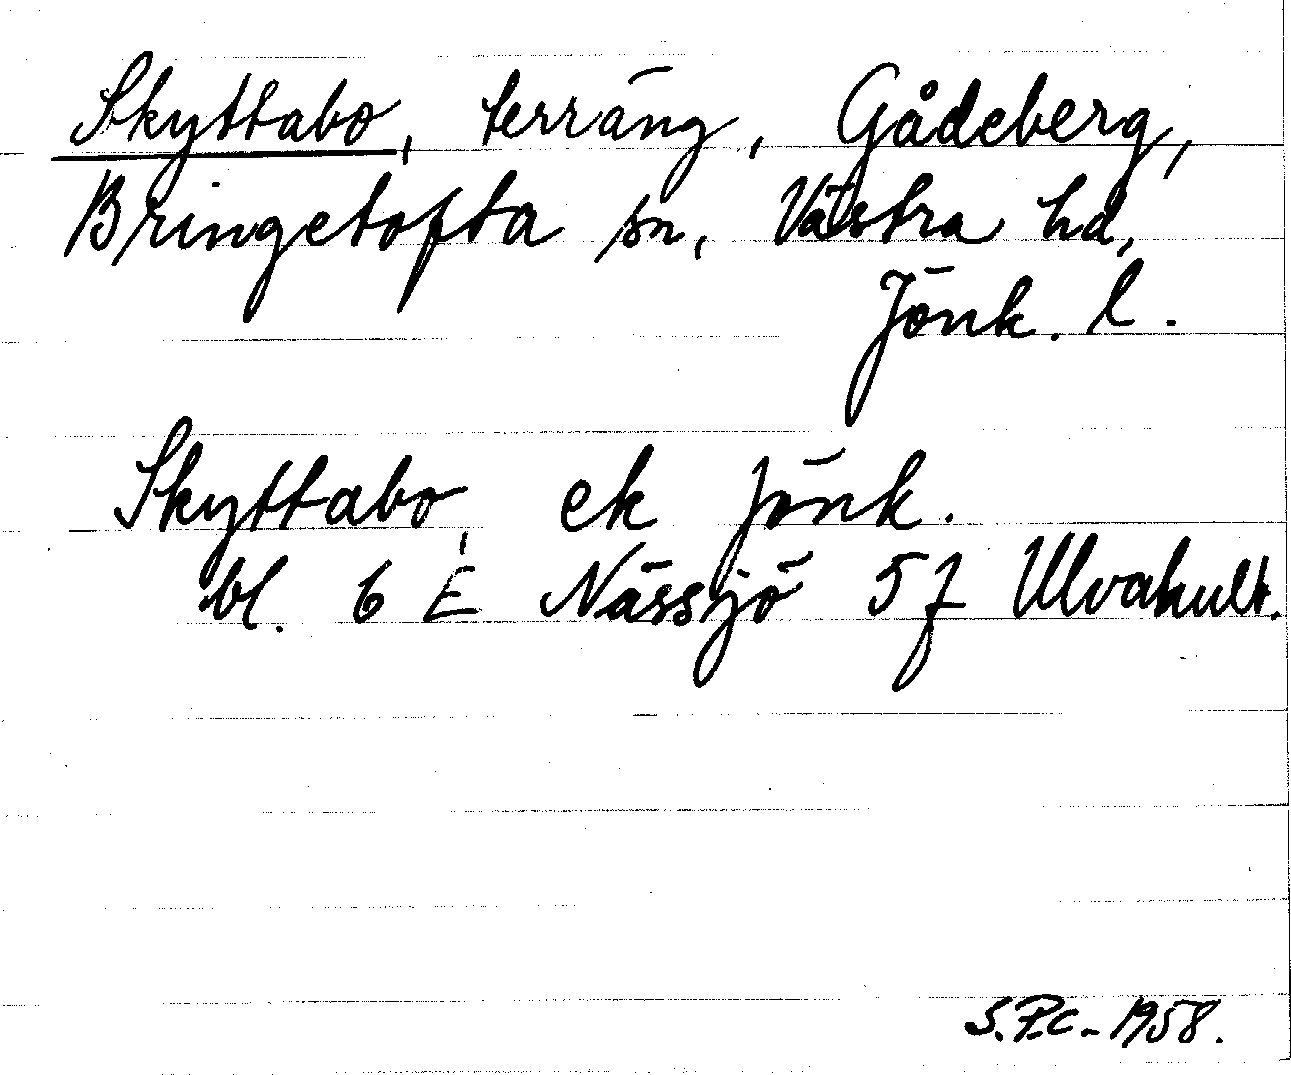 Skyttabo, terräng, Gådeberg,
Bringetofta sn, Västra hd,
Jönk. l.
Skyttabo, ek Jönk.
bl. 6 E Nässjö 5 f Ulvakult.
S.P.C. - 1958.